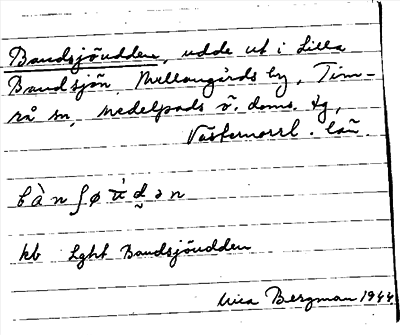 Bandsjöudden, udde ut i Lilla
Bandsjön, Mellangårds by, Tim-
rå sn, Medelpads ö. doms. tg,
Västernorrl. län.
bànʃø ù d ə n
kb Lght Bandsjöudden
Bergman 1944